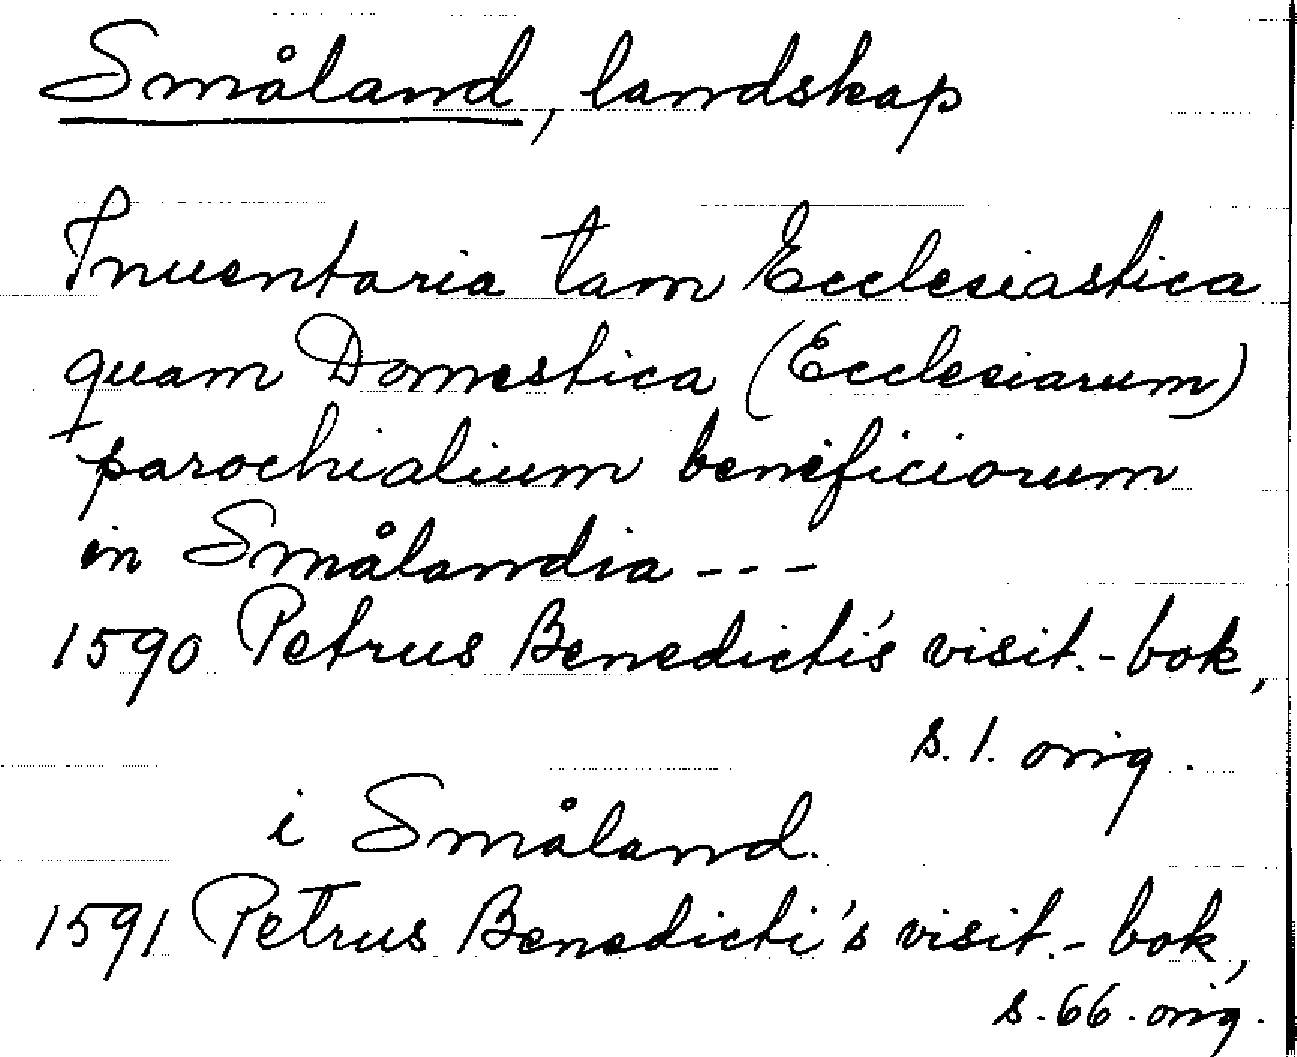 Småland, landskap
Inuentaria tam Ecclesiastica
quam Domestica (Ecclesiarum)
parochialium beneficiorum
in Smålandia ---
1590 Petrus Benedicti's visit.-bok,
s. 1. orig.
i Småland.
1591 Petrus Benedicti's visit.-bok,
s. 66. orig.